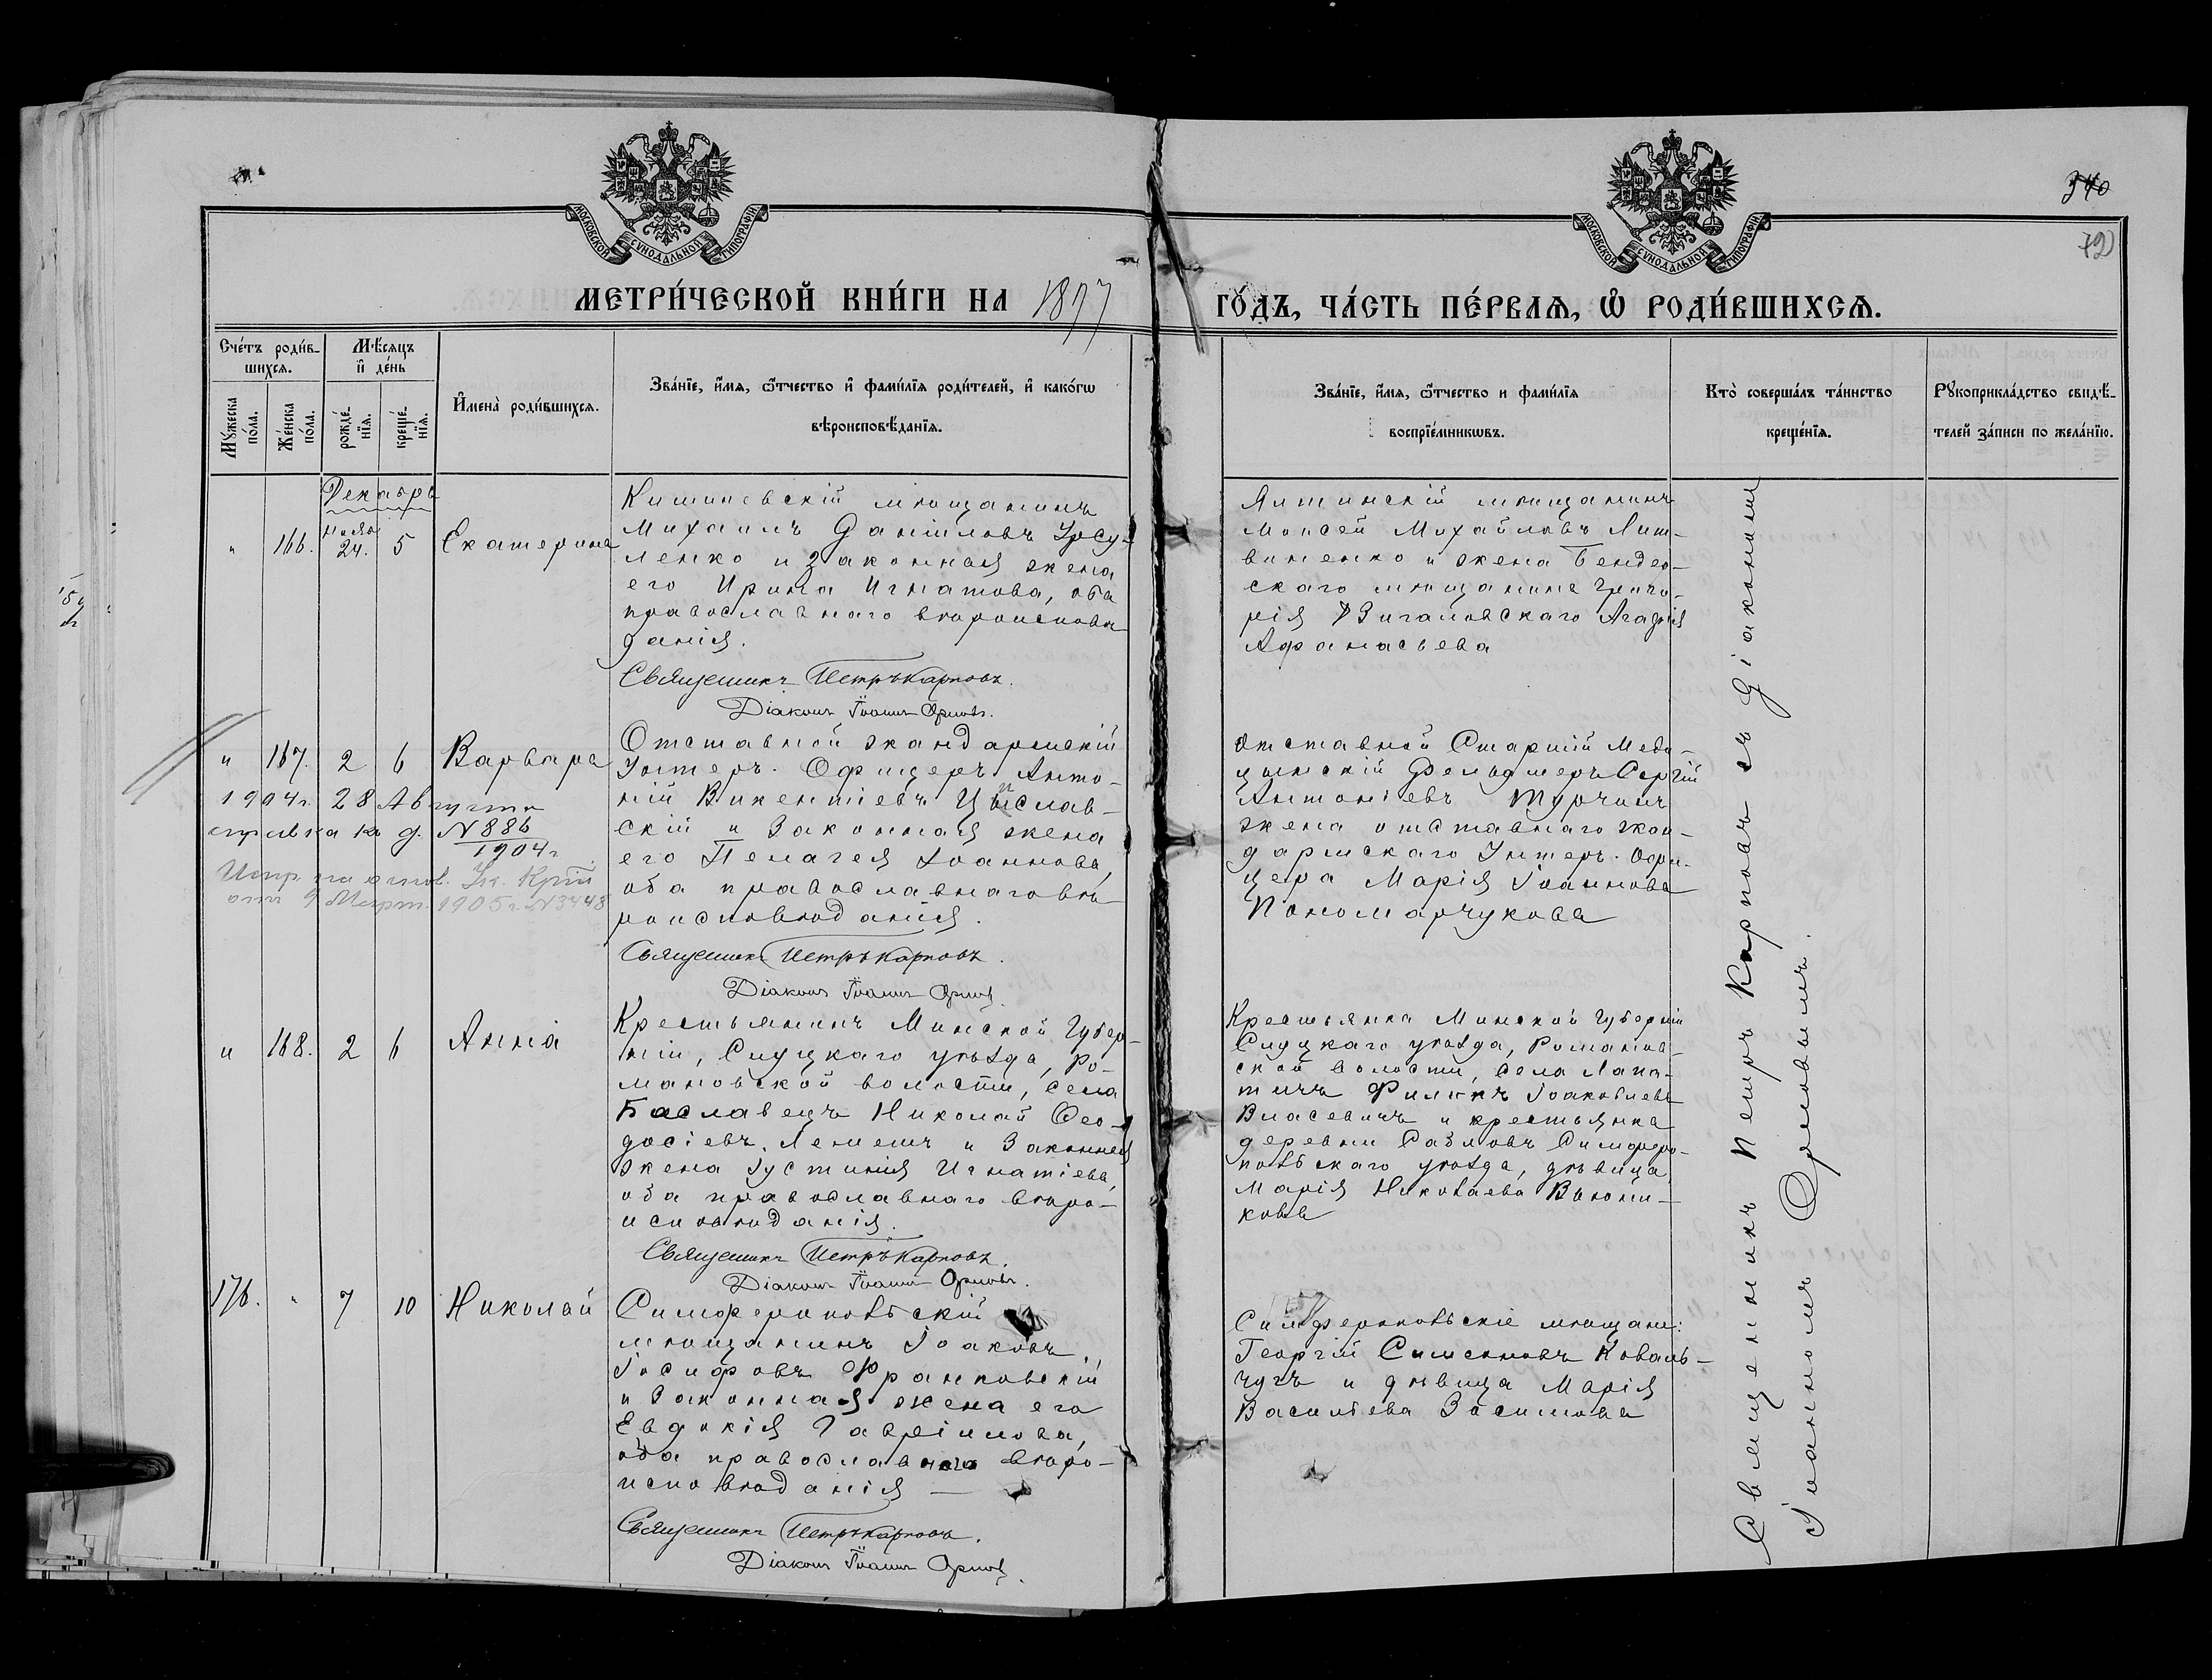 340
72
МОСКОВСКОЙ СУНОДАЛЬНОЙ ТИПОГРАФІИ
МОСКОВСКОЙ СУНОДАЛЬНОЙ ТИПОГРАФІИ
МЕТРИ́ЧЕСКОЙ КНИ́ГИ НА 1897 ГО́ДЪ, ЧА́СТЬ ПЕ́РВАЯ, Ѡ РОДИ́ВШИХСЯ.
Сче́тъ роди́в-
шихся.
Мꙋ́жеска по́ла.
Же́нска по́ла.
Мѣ́сяцъ
и҆ де́нь
рожде́-нїя.
креще́-нїя.
И҆мена̀ роди́вшихся.
Зва́нїе, и҆́мя, ѻ҆́тчество и҆ фами́лїя роди́телей, и҆ како́гѡ
вѣроисповѣ́данїя.
Зва́нїе, и҆́мя, ѻ҆́тчество и фами́лїя
воспрїе́мникѡвъ.
Кто̀ соверша́лъ та́инство
креще́нїя.
Рꙋкоприкла́дство свидѣ́-
телей за́писи по жела́нїю.
Декабрь
" 166. Ноябр. 24. 5 Екатерина
Кишиневскій мѣщанинъ
Михаилъ Даніиловъ Урсу-
ленко и законная жена
его Ирина Игнатова, оба
православнаго вѣроисповѣ
данія.
Священникъ Петръ Карповъ.
Діаконъ Іоаннъ Орловъ.
Ялтинскій мѣщанинъ
Моисей Михайловъ Лит-
виненко и жена Бендер-
скаго мѣщанина Григо-
рія Агафія
Афанасьева
" 167. 2 6 Варвара
1904 г. 28 Августа
справка къ д. № 886
1904 г.
от 9 Март. 1905 г. № 3448
Отставной жандармскій
Унтеръ-Офицеръ Анто-
ній Викентіевъ
скій и Законная жена
его Пелагея Іоаннова,
оба православнаго вѣ-
роисповѣданія.
Священникъ Петръ Карповъ.
Діаконъ Іоаннъ Орловъ.
Отставной Старшій Меди-
цынскій Фельдшеръ Сергій
Антоніевъ Турчинъ
жена отставнаго жан-
дармскаго Унтеръ-Офи-
цера Марія Іоаннова
Пономарчукова
" 168. 2 6 Анна
Крестьянинъ Минской Губер-
ніи, Слуцкаго уѣзда, Ро-
мановской волости, села
Баславецъ Николай Ѳео-
досіевъ Лемешъ и Законная
жена Іустинія Игнатіева,
оба православнаго вѣро-
исповѣданія.
Священникъ Петръ Карповъ.
Діаконъ Іоаннъ Орловъ.
Крестьянка Минской Губерніи
Слуцкаго уѣзда, Романов-
ской волости, села Лапа-
тичъ Іоаковлевъ
Власевичъ и крестьянка
деревни Сабловъ Симферо-
польскаго уѣзда, дѣвица
Марія Николаева
кова
176. " 7 10 Николай
Симферопольскій
мѣщанинъ Іоаковъ
Іосифовъ Франковскій
и Законная жена его
Евдокія Гавріилова,
оба православнаго вѣро-
исповѣданія —
Священникъ Петръ Карповъ.
Діаконъ Іоаннъ Орловъ.
Симферопольскіе мѣщане:
Георгій Симеоновъ Коваль-
чугъ и дѣвица Марія
Васильева Зосимова
Священникъ Петръ Карповъ съ діакономъ
Іоанномъ Орловымъ.